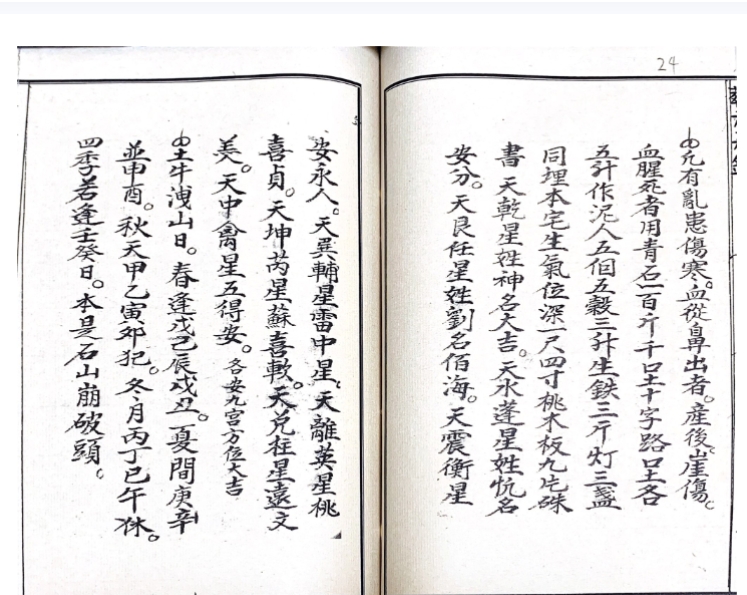 24
凢有亂患傷寒。血從鼻出者。產後崖傷。
血腥死者用青石一百斤千口土十字路口土各
五升作泥人五個五穀三升生鉄三斤灯三盞
同埋本宅生氣位深一尺四寸桃木板九片硃
書天乾星姓神名大吉。天水蓬星姓忼名
安分。天艮任星姓劉名佰海。天震衝星
安永人。天巽輔星雷中星。天離英星桃
喜貞。天坤芮星蘇喜軟。天兌柱星遠文
羙。天中禽星五得安。各安九宫方位大吉
土牛洩山日。春逢戊己辰戌丑。夏間庚辛
並申酉。秋天甲乙寅卯犯。冬月丙丁巳午休。
四季若逢壬癸日。本是石山崩破頭。